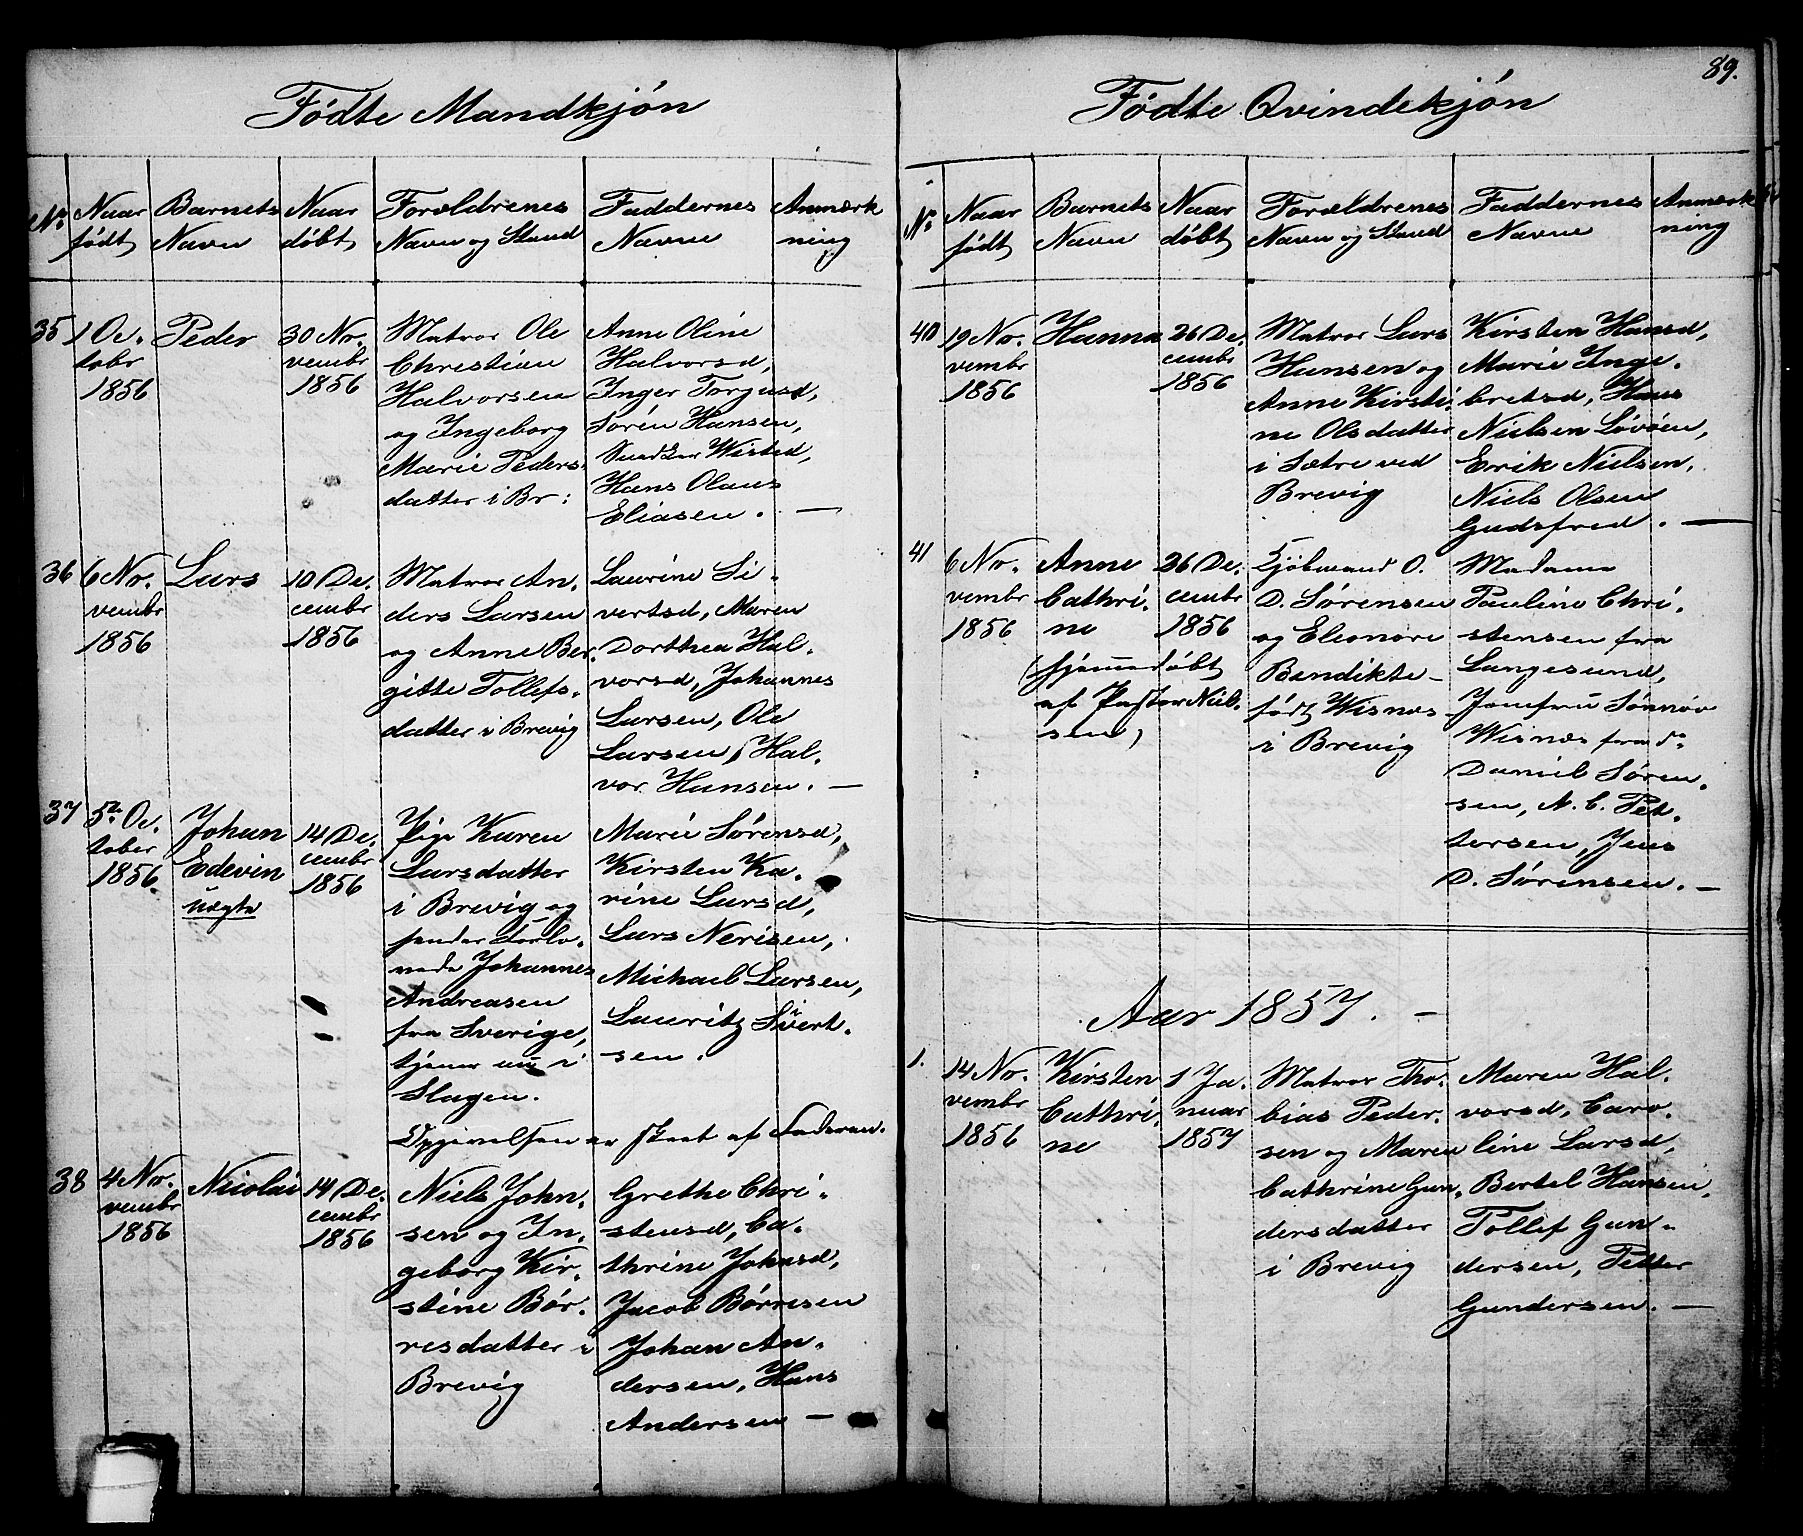 89.
Födte Mandkjön
No
Naar födt
Barnets Navn
Naar döbt
Forældrenes Navn og Stand
Faddernes Navne
Anmærkning
35
1 Oc.
tober
1856
Peder
30 No.
vembr
1856
Matros Ole
Christian
Halvorsen
og Ingeborg
Marie Peders
datter i Br:
Anne Oline
Halvorsd,
Inger Torgusd,
Sören Hansen,
Wisted,
Hans Olaus
Eliasen. —
36
6 No.
vembr
1856
Lars
10 De.
cembr
1856
Matros An.
ders Larsen
og Anne Ber.
gitte Tollefs.
datter i Brevig
Laurine Si.
vertsd, Maren
Dorthea Hal.
vorsd, Johannes
Larsen, Ole
Larsen, Hal.
vor Hansen. —
37
5te Oc.
tober
1856
Johan
Edevin
uægte
14 De.
cembr
1856
Pige Karen
Larsdatter
i Brevig og
forlo.
vede Johannes
Andreasen
fra Sverige,
tjener nu i
Slagen.
Opgivelsen er skeet af Faderen.
Marie Sörensd,
Kirsten Ka.
rine Larsd,
Lars Nerisen,
Michael Larsen,
Lauritz Sivert.
sen.
38
4 No.
vembr
1856
Nicolai
14 De.
cembr
1856
Niels John.
sen og In.
geborg Kir.
stine Bör.
resdatter i
Brevig
Grethe Chri.
stensd, Ca.
thrine Johnsd,
Jacob Börresen
Johan An.
dersen, Hans
Andersen —
Födte Qvindekjön
No
Naar födt
Barnets Navn
Naar döbt
Forældrenes Navn og Stand
Faddernes Navne
Anmærkning
40
19 No.
vembr
1856
Hanna
26 De.
cembr
1856
Matros Lars
Hansen og
Anne Kirsti.
ne Olsdatter
i Sætre ved
Brevig
Kirsten Hansd,
Marie Inge.
bretsd, Hans
Nielsen Lövöen,
Erik Nielsen,
Niels Olsen
Gudsfred. —
41
6 No.
vembr
1856
Anne
Cathri.
ne
(hjemmedöbt
af Pastor Niel.
sen)
26 De.
cembr
1856
Kjöbmand O.
D. Sörensen
og Eleonore
Bendikte
födt Wisnes
i Brevig
Madame
Pauline Chri.
stensen fra
Langesund,
Jomfru Sönnöv
Wisnæs fra do
Daniel Sören.
sen, N. C. Pet.
tersen, Jens
D. Sörensen. —
Aar 1857. —
1.
14 No.
vembr
1856
Kirsten
Cathri.
ne
1 Ja.
nuar
1857
Matros Tho.
bias Peder.
sen og Maren
Cathrine Gun.
dersdatter
i Brevig
Maren Hal.
vorsd, Caro.
line Larsd,
Bertel Hansen,
Tollef Gun.
dersen, Petter
Gundersen. —